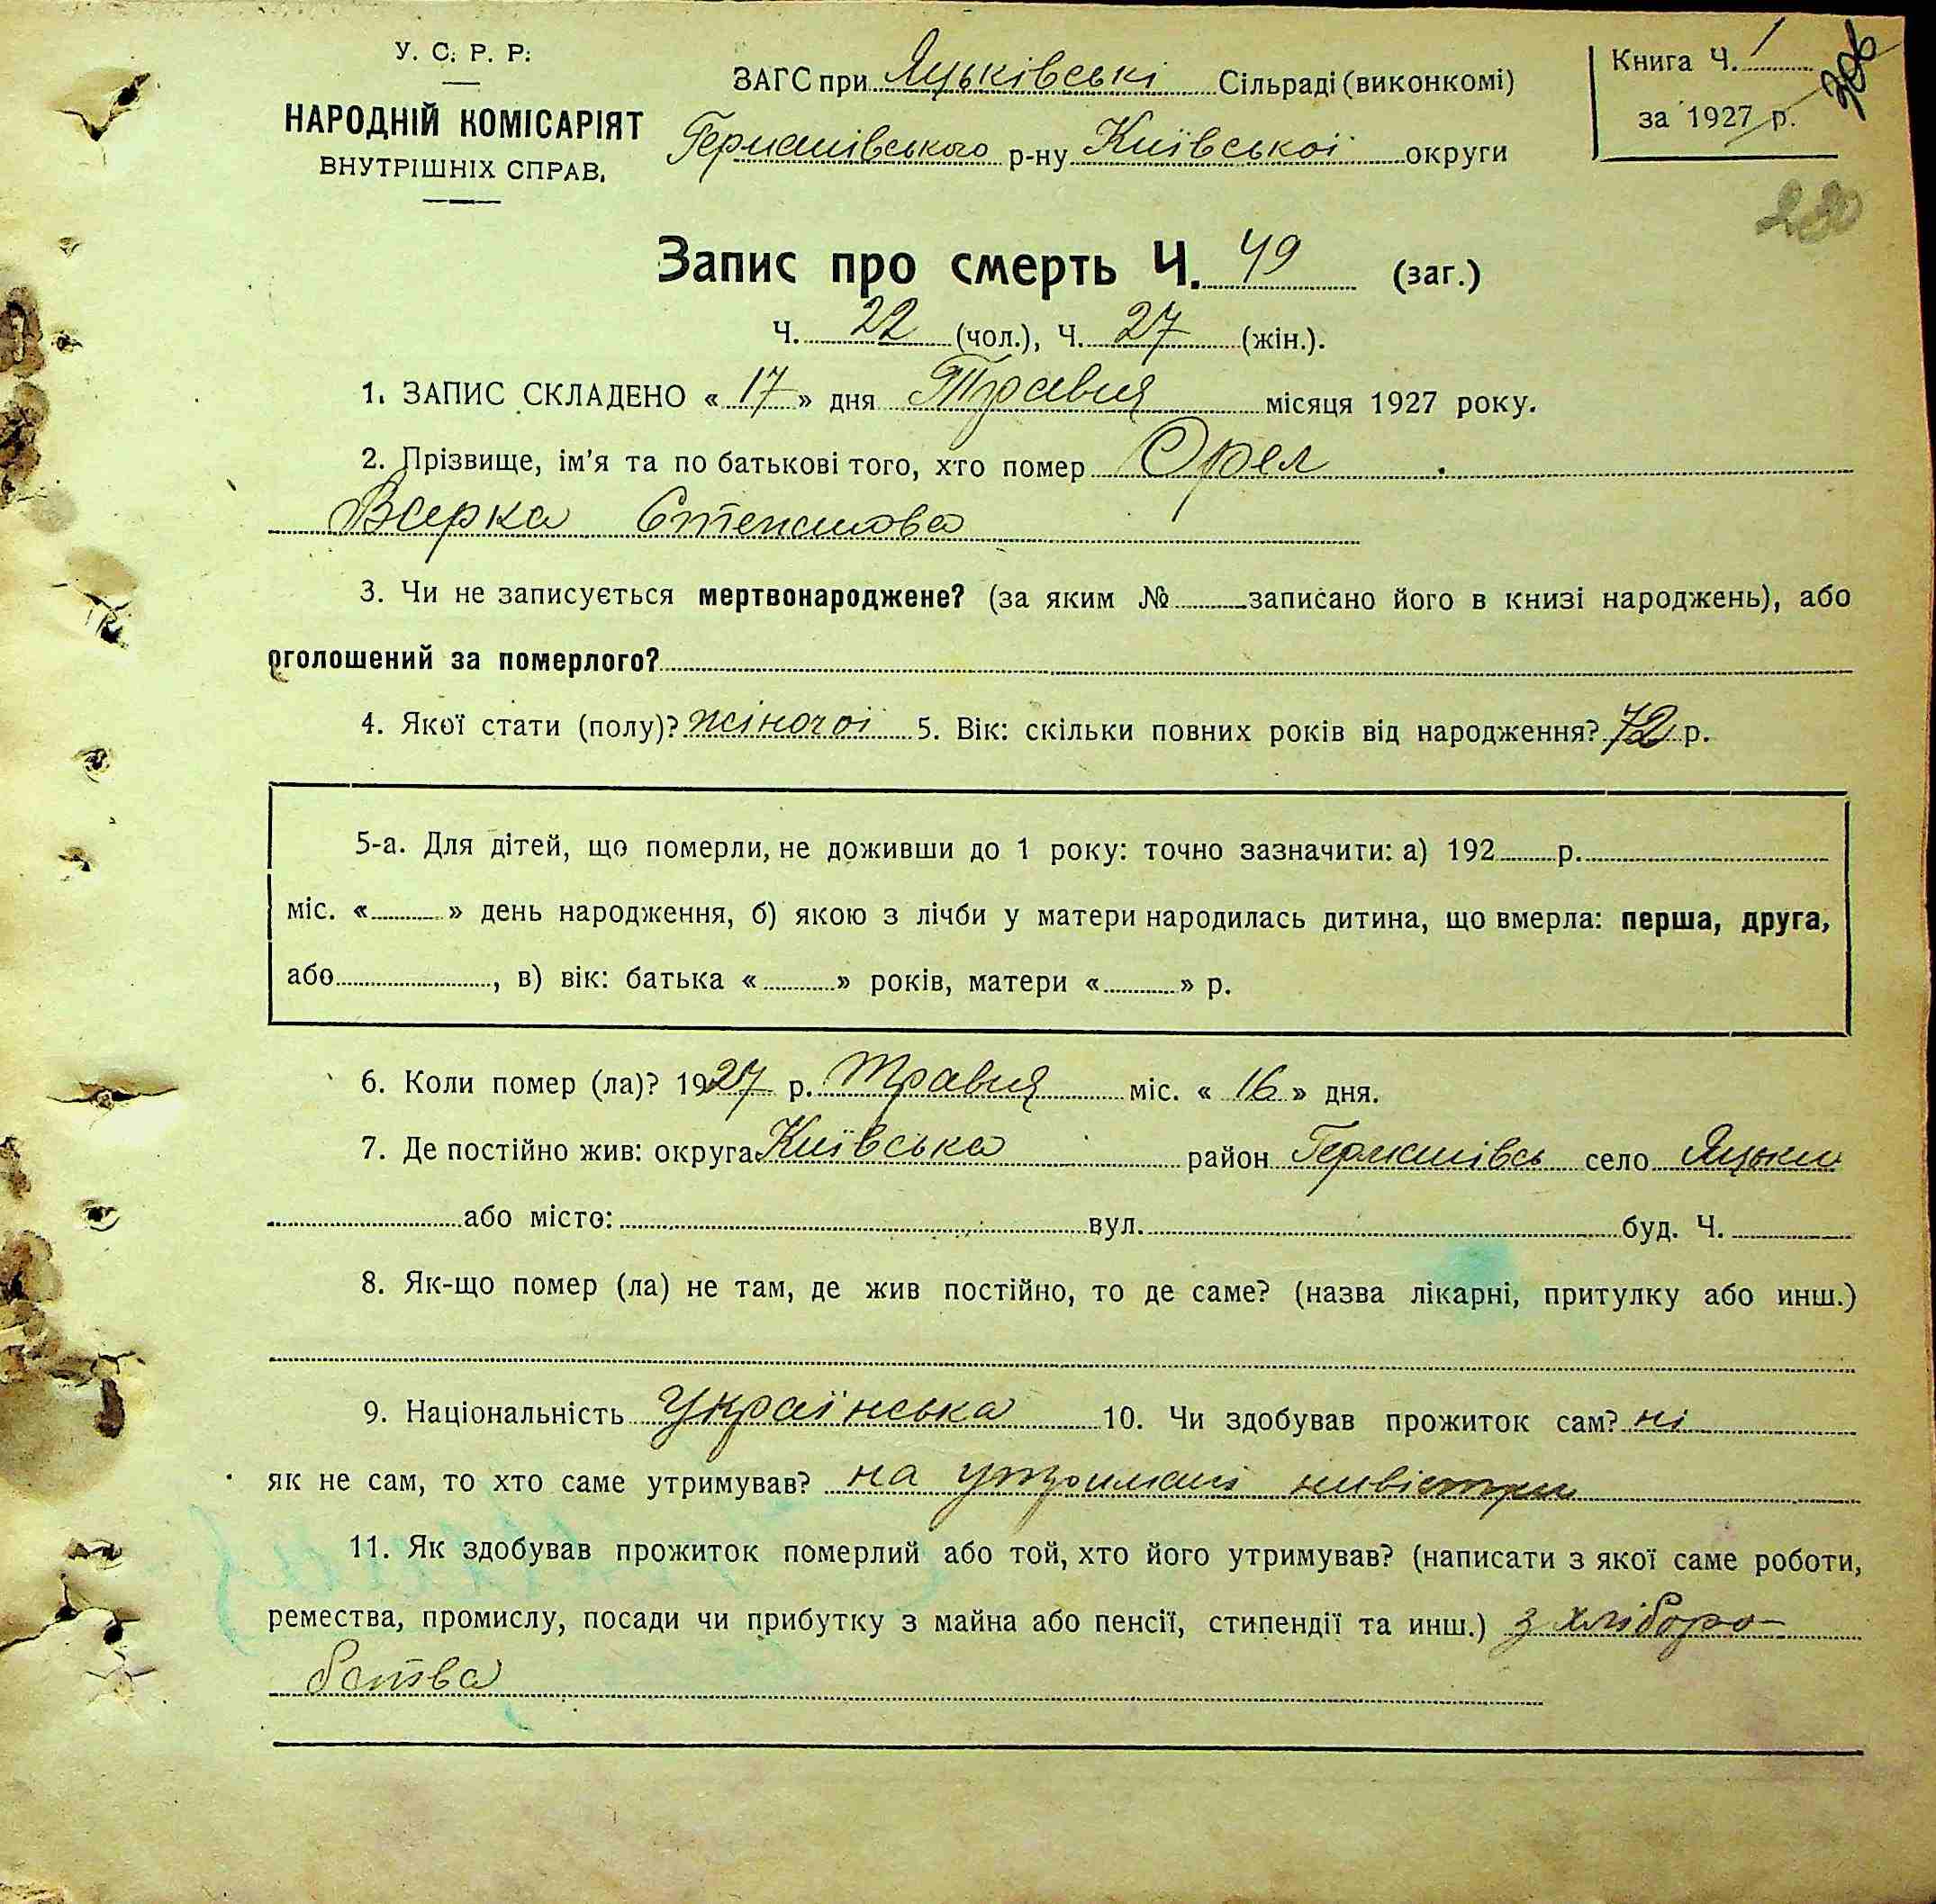 У. С. Р. Р.
НАРОДНІЙ КОМІСАРІЯТ
ВНУТРІШНІХ СПРАВ.
ЗАГС при Яцьківські Сільраді (виконкомі)
Германівського р-ну Київськоі округи
Книга Ч. 1
за 1927 р.
306
230
Запис про смерть Ч. 49 (заг.)
Ч. 22 (чол.), Ч. 27 (жін.).
1. ЗАПИС СКЛАДЕНО « 17 » дня Травня місяця 1927 року.
2. Прізвище, ім'я та по батькові того, хто помер Орел
Варка Степанова
3. Чи не записується мертвонароджене? (за яким № записано його в книзі народжень), або
оголошений за померлого?
4. Якої стати (полу)? жіночоі 5. Вік: скільки повних років від народження? 72 р.
5-а. Для дітей, що померли, не доживши до 1 року: точно зазначити: а) 192 р.
міс. « » день народження, б) якою з лічби у матери народилась дитина, що вмерла: перша, друга,
або , в) вік: батька « » років, матери « » р.
6. Коли помер (ла)? 1927 р. Травня міс. « 16 » дня.
7. Де постійно жив: округа Київська район Германівсь село Яцьки
або місто: вул. буд. Ч.
8. Як-що помер (ла) не там, де жив постійно, то де саме? (назва лікарні, притулку або инш.)
9. Національність Українська 10. Чи здобував прожиток сам? ні
як не сам, то хто саме утримував? на утримані невістки
11. Як здобував прожиток померлий або той, хто його утримував? (написати з якої саме роботи,
ремества, промислу, посади чи прибутку з майна або пенсії, стипендії та инш.) з хліборо-
бства